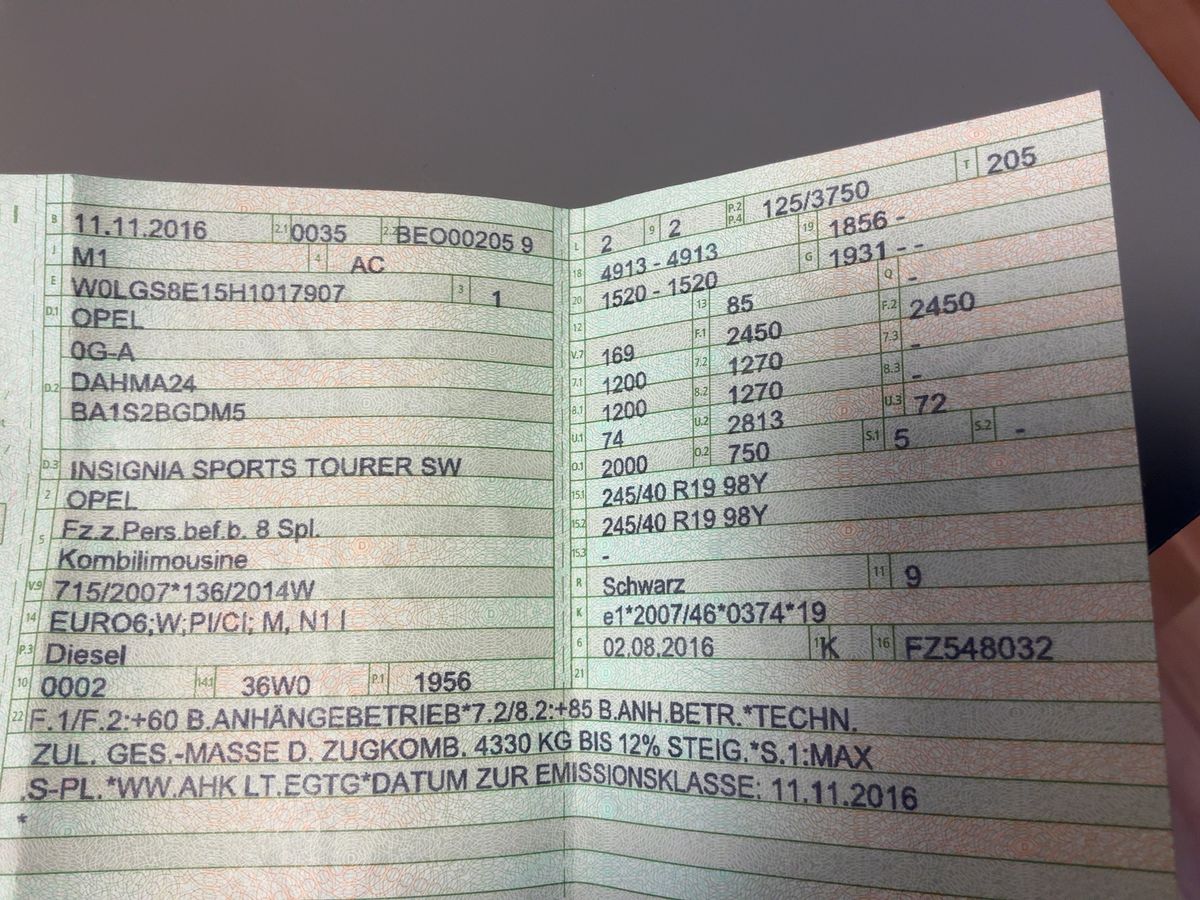 B 11.11.2016 2.1 0035 2.2 BEO00205 9
J M1 4 AC
E W0LGS8E15H1017907 3 1
D.1 OPEL
0G-A
D.2 DAHMA24
BA1S2BGDM5
D.3 INSIGNIA SPORTS TOURER SW
2 OPEL
5 Fz.z.Pers.bef.b. 8 Spl.
Kombilimousine
V.9 715/2007*136/2014W
14 EURO6;W;PI/CI; M, N1 I
P.3 Diesel
10 0002 14.1 36W0 P.1 1956
L 2 9 2 P.2 P.4 125/3750 T 205
18 4913 - 4913 19 1856 -
20 1520 - 1520 G 1931 - -
12 13 85 Q -
V.7 169 F.1 2450 F.2 2450
7.1 1200 7.2 1270 7.3 -
8.1 1200 8.2 1270 8.3 -
U.1 74 U.2 2813 U.3 72
O.1 2000 O.2 750 S.1 5 S.2 -
15.1 245/40 R19 98Y
15.2 245/40 R19 98Y
15.3 -
R Schwarz 11 9
K e1*2007/46*0374*19
6 02.08.2016 17 K 16 FZ548032
21
22 F.1/F.2:+60 B.ANHÄNGEBETRIEB*7.2/8.2:+85 B.ANH.BETR.*TECHN.
ZUL. GES.-MASSE D. ZUGKOMB. 4330 KG BIS 12% STEIG.*S.1:MAX
.S-PL.*WW.AHK LT.EGTG*DATUM ZUR EMISSIONSKLASSE: 11.11.2016
*